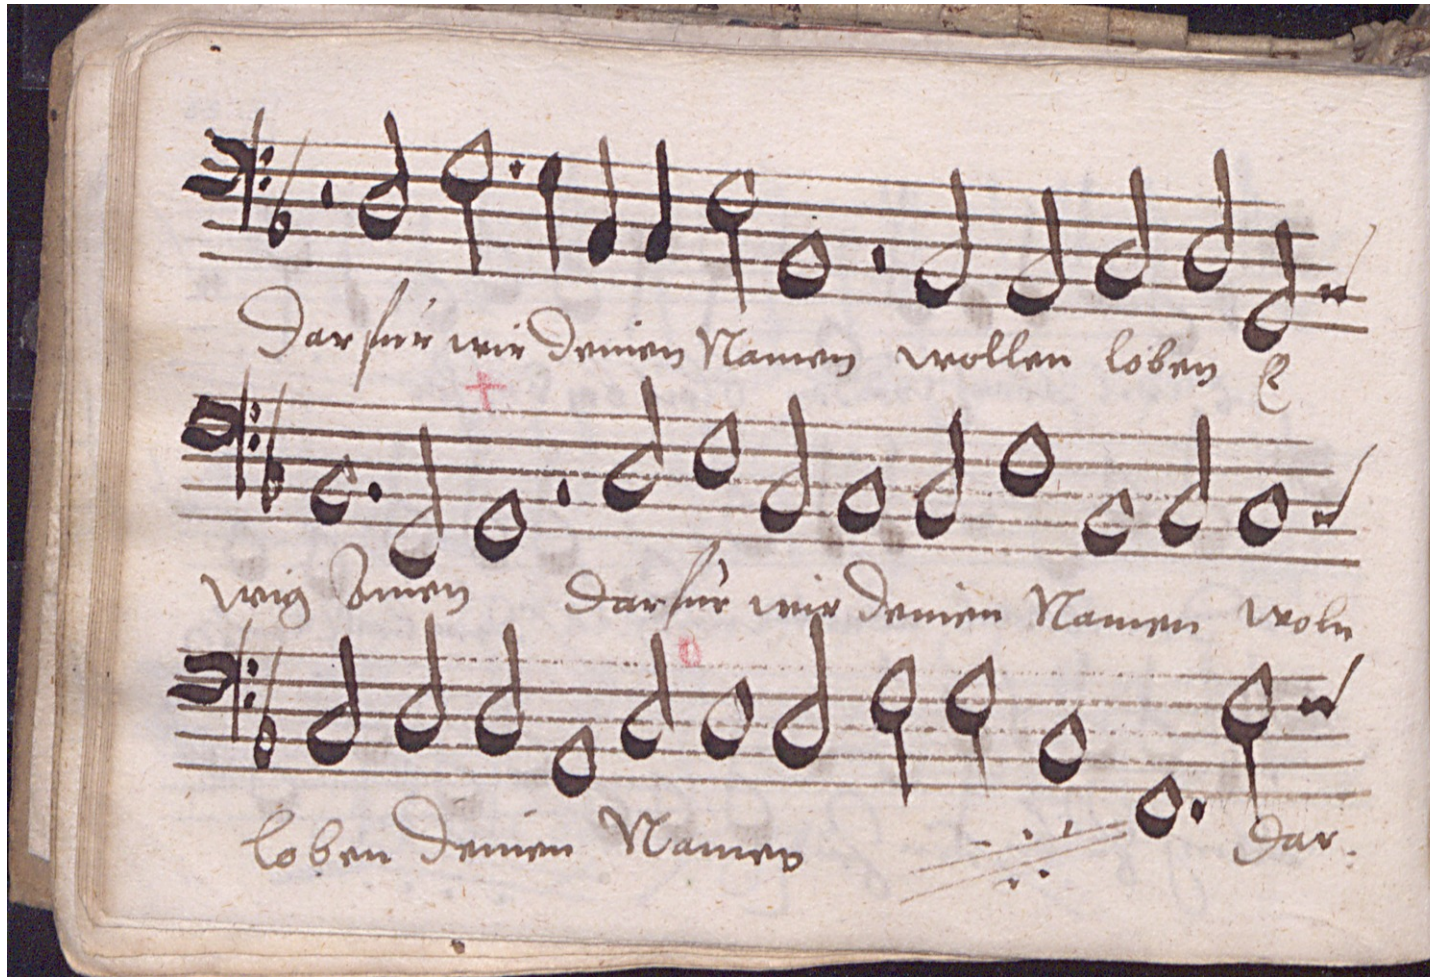 Darfür wir deinen Namen wollen loben E
wig Amen Darfür wir deinen Namen woln
loben deinen Namen Dar.